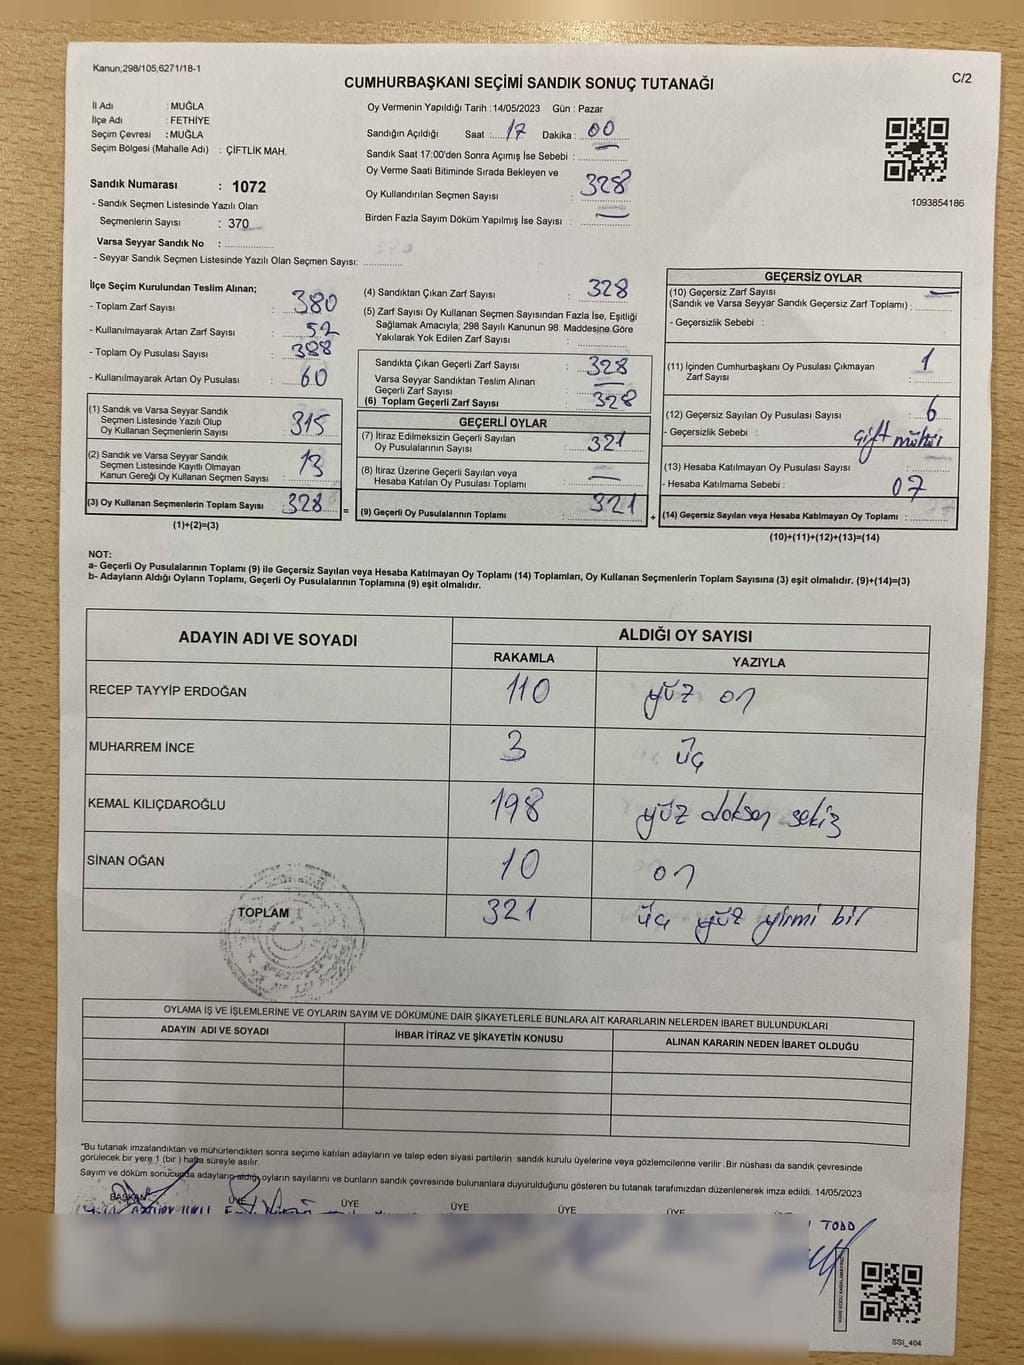 Kanun;298/105;6271/18-1
C/2
CUMHURBAŞKANI SEÇİMİ SANDIK SONUÇ TUTANAĞI
İl Adı : MUĞLA
İlçe Adı : FETHİYE
Seçim Çevresi : MUĞLA
Seçim Bölgesi (Mahalle Adı) : ÇİFTLİK MAH.
Sandık Numarası : 1072
- Sandık Seçmen Listesinde Yazılı Olan
Seçmenlerin Sayısı : 370
Varsa Seyyar Sandık No :
- Seyyar Sandık Seçmen Listesinde Yazılı Olan Seçmen Sayısı:
Oy Vermenin Yapıldığı Tarih : 14/05/2023 Gün : Pazar
Sandığın Açıldığı Saat : 17 Dakika : 00
Sandık Saat 17:00'den Sonra Açımış İse Sebebi :
Oy Verme Saati Bitiminde Sırada Bekleyen ve
Oy Kullandırılan Seçmen Sayısı : 328
Birden Fazla Sayım Döküm Yapılmış İse Sayısı :
1093854186
İlçe Seçim Kurulundan Teslim Alınan;
- Toplam Zarf Sayısı : 380
- Kullanılmayarak Artan Zarf Sayısı : 52
- Toplam Oy Pusulası Sayısı : 388
- Kullanılmayarak Artan Oy Pusulası : 60
(1) Sandık ve Varsa Seyyar Sandık
Seçmen Listesinde Yazılı Olup
Oy Kullanan Seçmenlerin Sayısı : 315
(2) Sandık ve Varsa Seyyar Sandık
Seçmen Listesinde Kayıtlı Olmayan
Kanun Gereği Oy Kullanan Seçmen Sayısı : 13
(3) Oy Kullanan Seçmenlerin Toplam Sayısı : 328 =
(1)+(2)=(3)
(4) Sandıktan Çıkan Zarf Sayısı : 328
(5) Zarf Sayısı Oy Kullanan Seçmen Sayısından Fazla İse, Eşitliği
Sağlamak Amacıyla; 298 Sayılı Kanunun 98. Maddesine Göre
Yakılarak Yok Edilen Zarf Sayısı :
Sandıkta Çıkan Geçerli Zarf Sayısı : 328
Varsa Seyyar Sandıktan Teslim Alınan
Geçerli Zarf Sayısı :
(6) Toplam Geçerli Zarf Sayısı : 328
GEÇERLİ OYLAR
(7) İtiraz Edilmeksizin Geçerli Sayılan
Oy Pusulalarının Sayısı : 321
(8) İtiraz Üzerine Geçerli Sayılan veya
Hesaba Katılan Oy Pusulası Toplamı :
(9) Geçerli Oy Pusulalarının Toplamı : 321 +
GEÇERSİZ OYLAR
(10) Geçersiz Zarf Sayısı
(Sandık ve Varsa Seyyar Sandık Geçersiz Zarf Toplamı) :
- Geçersizlik Sebebi :
(11) İçinden Cumhurbaşkanı Oy Pusulası Çıkmayan
Zarf Sayısı : 1
(12) Geçersiz Sayılan Oy Pusulası Sayısı : 6
- Geçersizlik Sebebi : çift mühür
(13) Hesaba Katılmayan Oy Pusulası Sayısı :
- Hesaba Katılmama Sebebi :
07
(14) Geçersiz Sayılan veya Hesaba Katılmayan Oy Toplamı :
(10)+(11)+(12)+(13)=(14)
NOT:
a- Geçerli Oy Pusulalarının Toplamı (9) ile Geçersiz Sayılan veya Hesaba Katılmayan Oy Toplamı (14) Toplamları, Oy Kullanan Seçmenlerin Toplam Sayısına (3) eşit olmalıdır. (9)+(14)=(3)
b- Adayların Aldığı Oyların Toplamı, Geçerli Oy Pusulalarının Toplamına (9) eşit olmalıdır.
ADAYIN ADI VE SOYADI ALDIĞI OY SAYISI
RAKAMLA YAZIYLA
RECEP TAYYİP ERDOĞAN 110 yüz on
MUHARREM İNCE 3 üç
KEMAL KILIÇDAROĞLU 198 yüz doksan sekiz
SİNAN OĞAN 10 on
TOPLAM 321 üç yüz yirmi bir
OYLAMA İŞ VE İŞLEMLERİNE VE OYLARIN SAYIM VE DÖKÜMÜNE DAİR ŞİKAYETLERLE BUNLARA AİT KARARLARIN NELERDEN İBARET BULUNDUKLARI
ADAYIN ADI VE SOYADI İHBAR İTİRAZ VE ŞİKAYETİN KONUSU ALINAN KARARIN NEDEN İBARET OLDUĞU
*Bu tutanak imzalandıktan ve mühürlendikten sonra seçime katılan adayların ve talep eden siyasi partilerin sandık kurulu üyelerine veya gözlemcilerine verilir .Bir nüshası da sandık çevresinde
görülecek bir yere 1 (bir ) hafta süreyle asılır.
Sayım ve döküm sonucunda adayların aldığı oyların sayılarını ve bunların sandık çevresinde bulunanlara duyurulduğunu gösteren bu tutanak tarafımızdan düzenlenerek imza edildi. 14/05/2023
BAŞKAN ÜYE ÜYE ÜYE ÜYE ÜYE
SSI_404